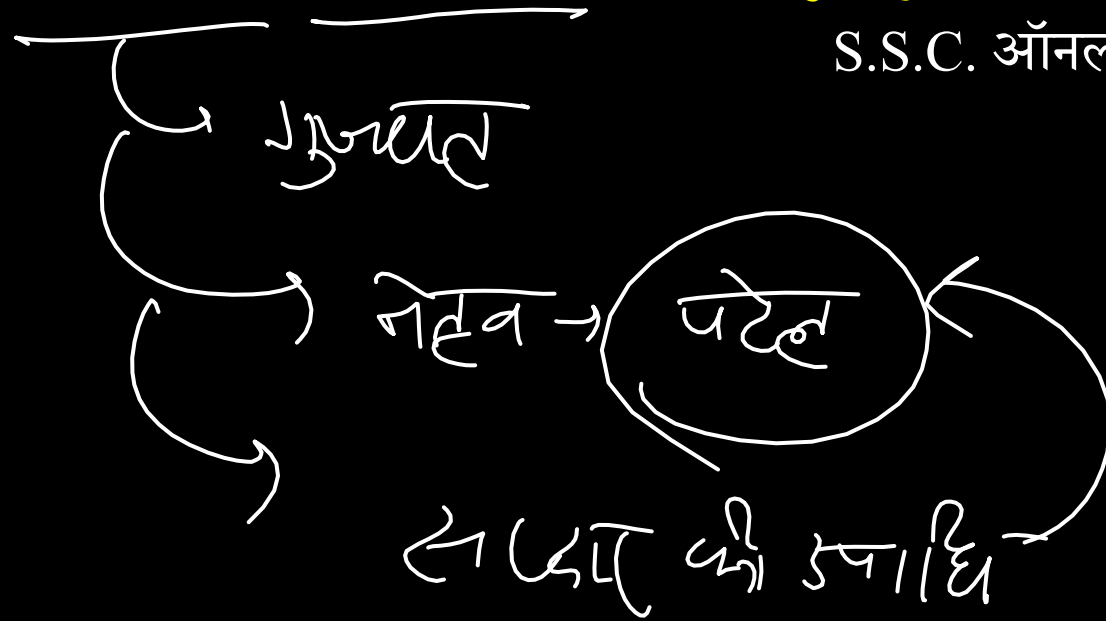 S.S.C. ऑनल
गुजरात
नेहरू → पटेल
सरदार की उपाधि